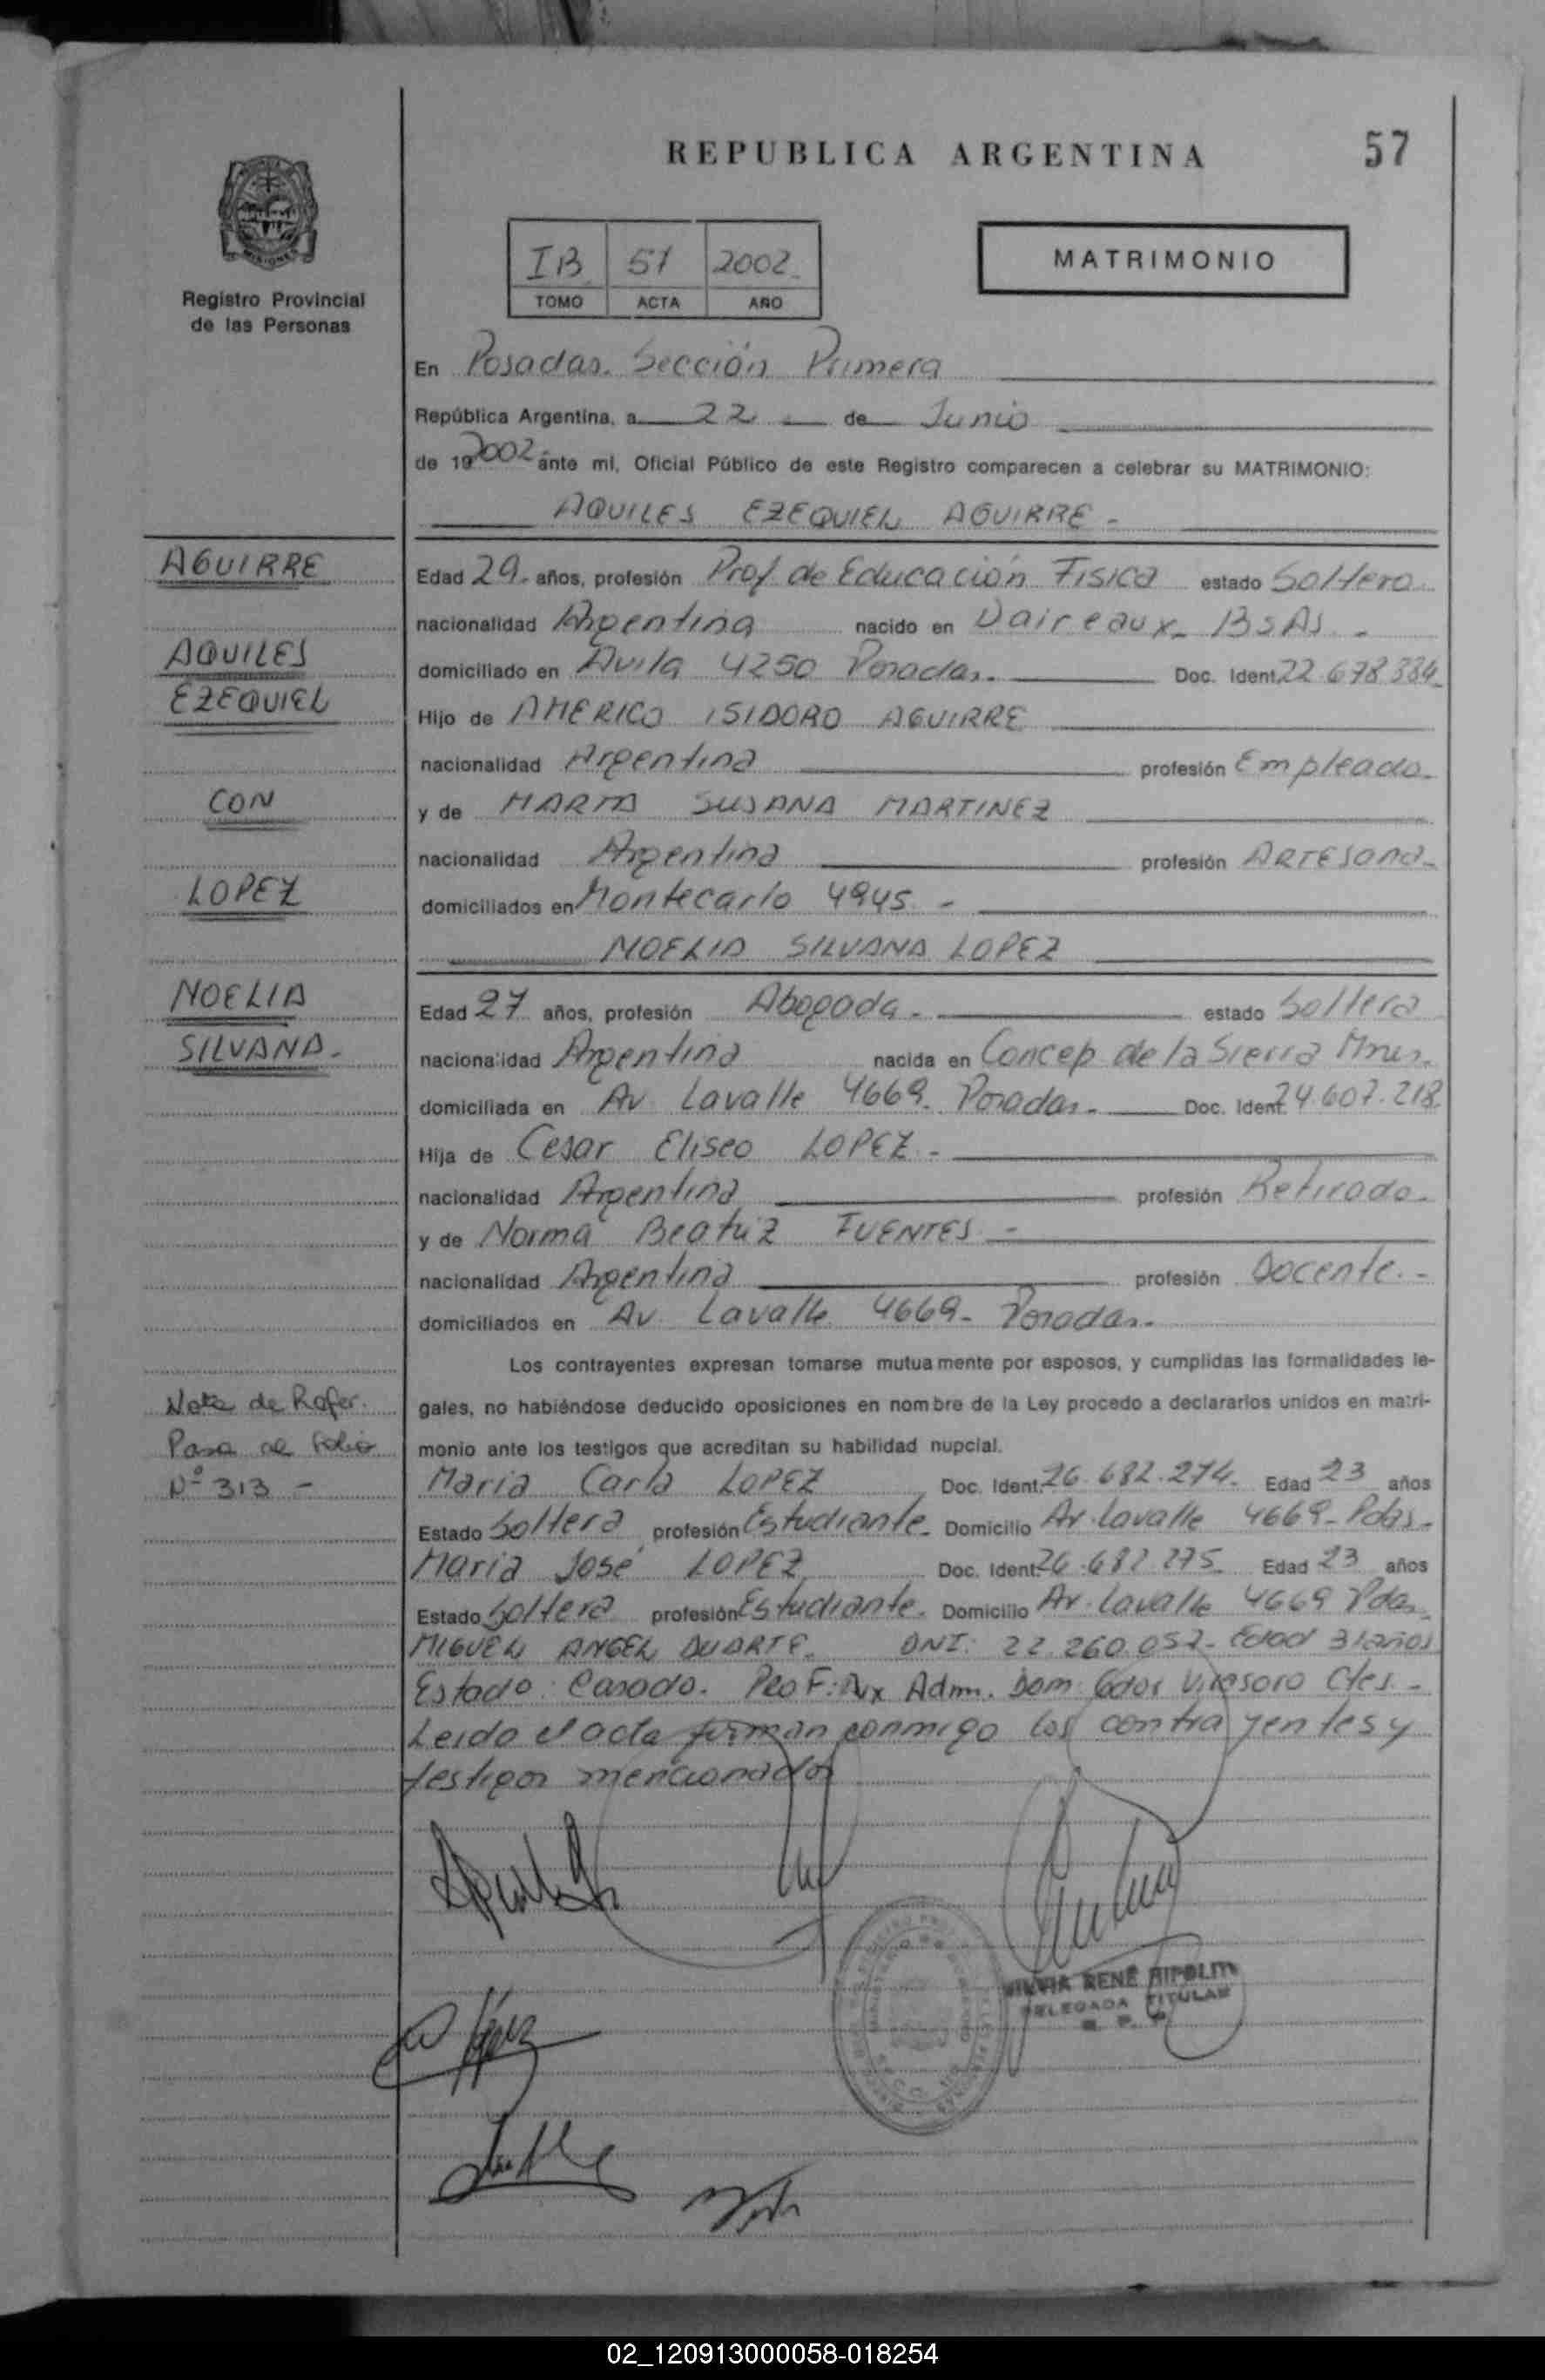 REPUBLICA ARGENTINA
57
Registro Provincial
de las Personas
IB 57 2002
TOMO ACTA AÑO
MATRIMONIO
En Posadas. Sección Primera
República Argentina, a 22 de Junio
de 19 2002 ante mi, Oficial Público de este Registro comparecen a celebrar su MATRIMONIO:
AQUILES EZEQUIEL AGUIRRE -
AGUIRRE
AQUILES
EZEQUIEL
CON
LOPEZ
NOELIA
SILVANA.-
Edad 29. años, profesión Prof de Educación Fisica estado Soltero
nacionalidad Argentina nacido en Daireaux - BsAs -
domiciliado en Avila 4250 Posadas. Doc. Ident. 22.678.334
Hijo de AMERICO ISIDORO AGUIRRE
nacionalidad Argentina profesión Empleado.
y de MARTA SUSANA MARTINEZ
nacionalidad Argentina profesión ARTESANA-
domiciliados en Montecarlo 4945 -
NOELIA SILVANA LOPEZ
Edad 27 años, profesión Abogada - estado Soltera
nacionalidad Argentina nacida en Concep de la Sierra Mnes.
domiciliada en Av Lavalle 4669. Posadas. Doc. Ident. 24.607.218
Hija de Cesar Eliseo LOPEZ -
nacionalidad Argentina profesión Retirado.
y de Norma Beatriz FUENTES -
nacionalidad Argentina profesión Docente.-
domiciliados en Av. Lavalle 4669- Posadas.
Los contrayentes expresan tomarse mutuamente por esposos, y cumplidas las formalidades le-
gales, no habiéndose deducido oposiciones en nombre de la Ley procedo a declararlos unidos en matri-
monio ante los testigos que acreditan su habilidad nupcial.
Nota de Refer.
Pasa al Folio
Nº 313 -
Maria Carla LOPEZ Doc. Ident. 26.682.274- Edad 23 años
Estado Soltera profesión Estudiante- Domicilio Av. Lavalle 4669- Pdas-
Maria José LOPEZ Doc. Ident. 26.682.275 Edad 23 años
Estado Soltera profesión Estudiante. Domicilio Av. Lavalle 4669 Pdas
MIGUEL ANGEL DUARTE. DNI: 22.260.052- Edad 31años
Estado: Casado. Prof: Aux Adm. Dom: Gdor Virasoro Ctes.-
Leido el acta firman conmigo los contrayentes y
testigos mencionados
SILVIA RENE RIPOLL
DELEGADA TITULAR
R. P. P.
02_120913000058-018254